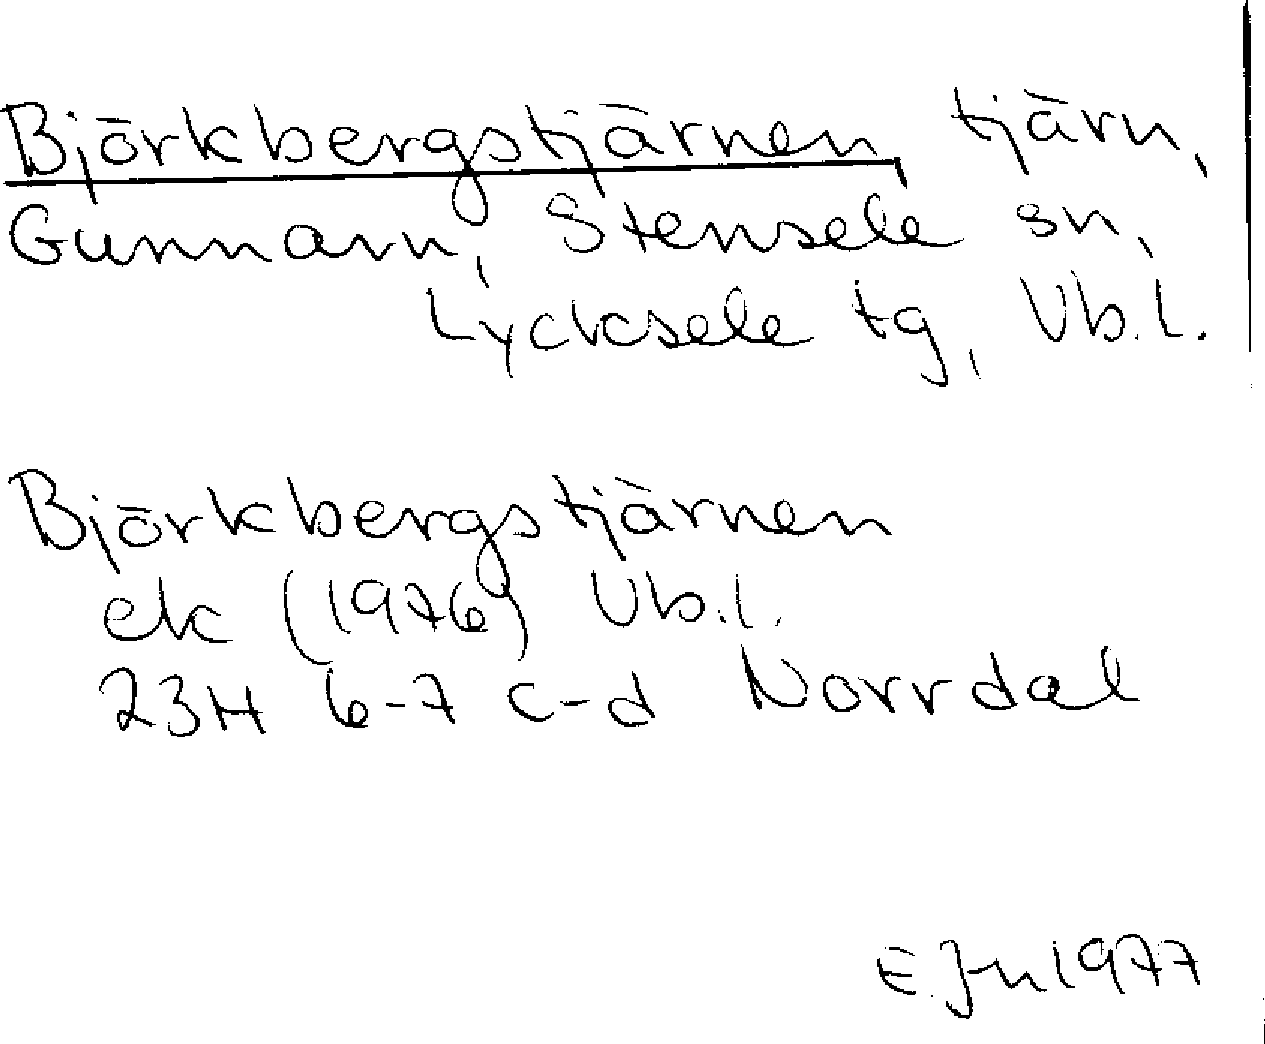 Björkbergstjärnen, tjärn,
Gunnarn, Stensele sn,
Lycksele tg, Vb.l.
Björkbergstjärnen
ek (1976) Vb.l.
23H 6-7 c-d Norrdal
E. Jn 1977